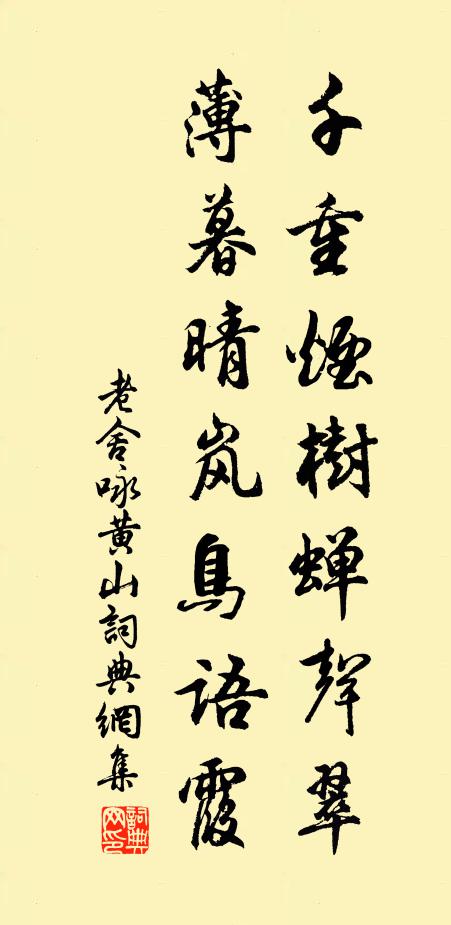 千重煙樹蟬聲翠
薄暮晴岚鳥語霞
老舍咏黄山詞典網集
詞典
网印